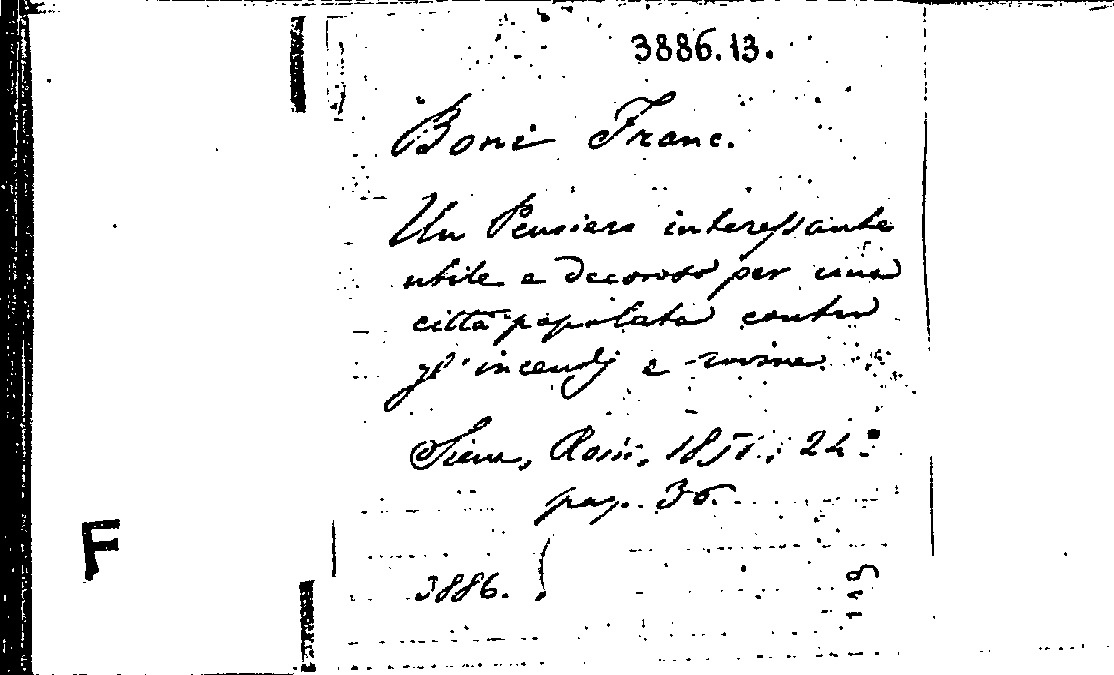 3886.13.
Boni Franc.
Un Pensiero interessante
utile e decoroso per una
città popolata contro
gl'incendj e rovine.
Siena, Rossi, 1851., 24.°
pag. 36.
3886.
119
F